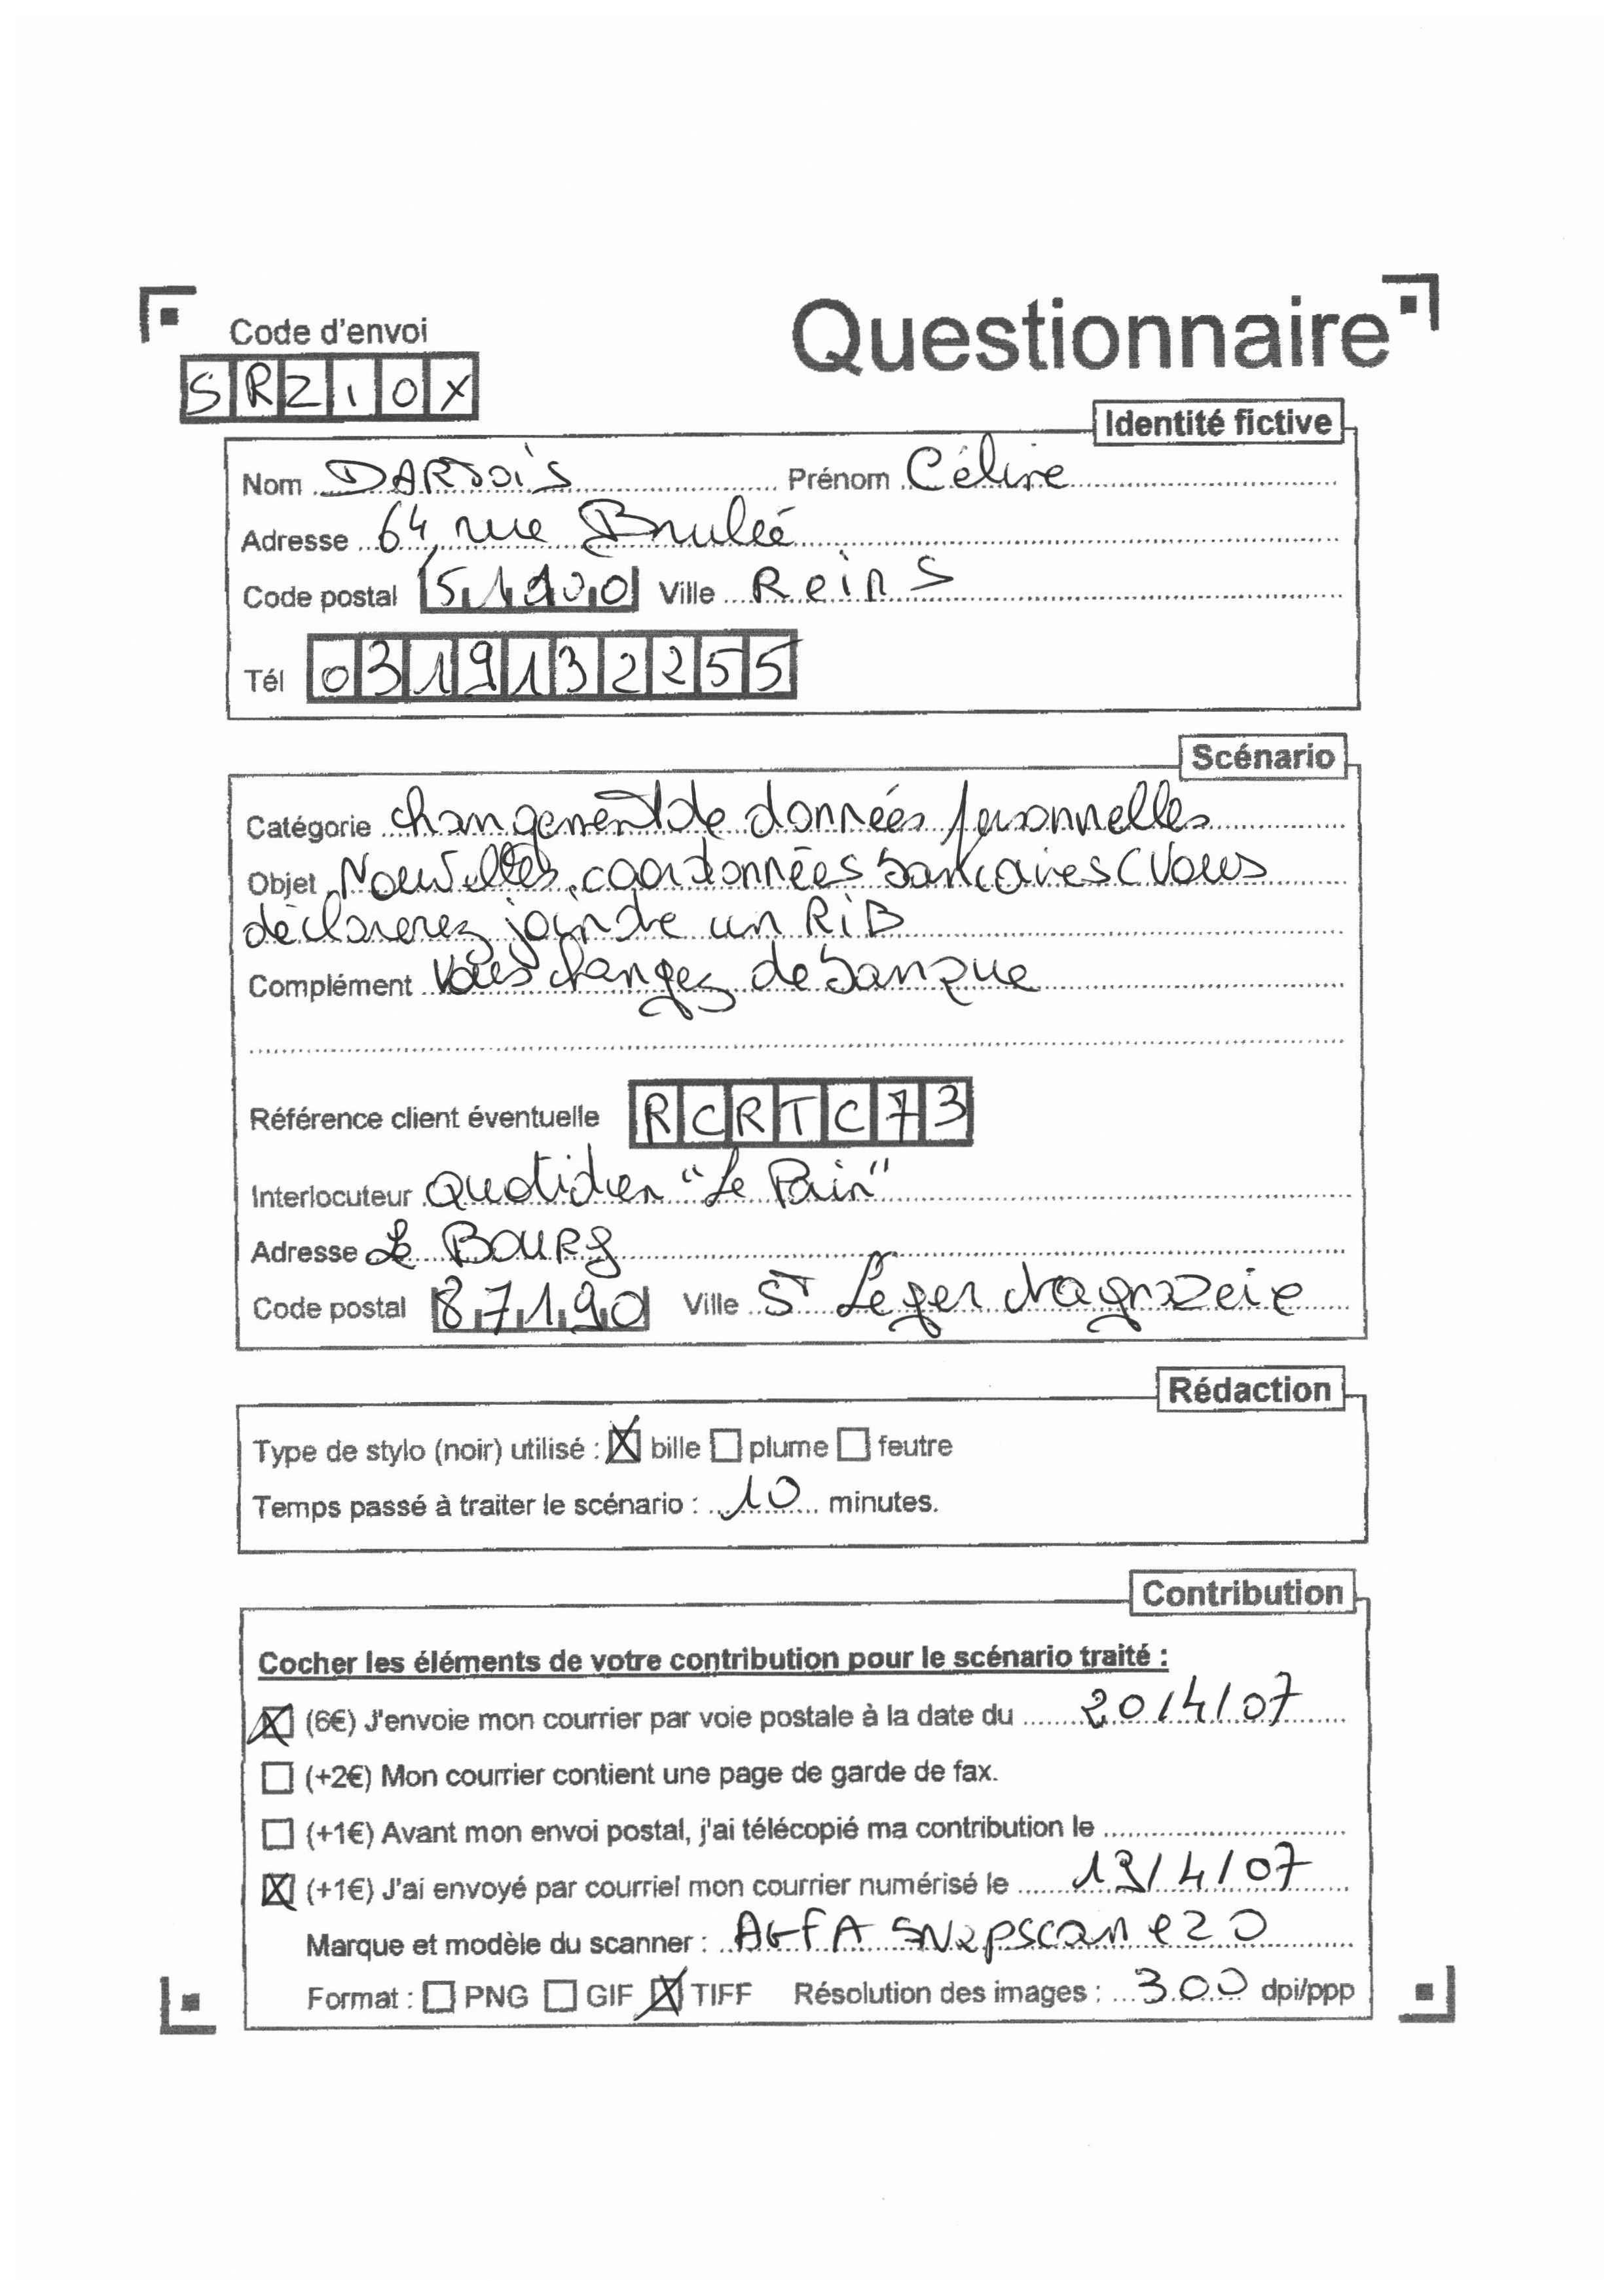 Code d'envoi
Questionnaire
SRZ10X
Identité fictive
Nom DARTOIS Prénom Céline
Adresse 64, rue Brulée
Code postal 51100 Ville Reins
Tél 0319132255
Scénario
Catégorie changement de données personnelles
Objet Nouvelles coordonnées bancaires (Vous
déclarerez joindre un RiB
Complément Vous changez de banque
Référence client éventuelle RCRTC73
Interlocuteur Quotidien "Le Pain"
Adresse Le Bourg
Code postal 87190 Ville St Léger
Rédaction
Type de stylo (noir) utilisé : bille plume feutre
Temps passé à traiter le scénario : 10 minutes.
Contribution
Cocher les éléments de votre contribution pour le scénario traité :
(6€) J'envoie mon courrier par voie postale à la date du 20/4/07
(+2€) Mon courrier contient une page de garde de fax.
(+1€) Avant mon envoi postal, j'ai télécopié ma contribution le
(+1€) J'ai envoyé par courriel mon courrier numérisé le 19/4/07
Marque et modèle du scanner : AGFA SNapscan e20
Format : PNG GIF TIFF Résolution des images : 300 dpi/ppp